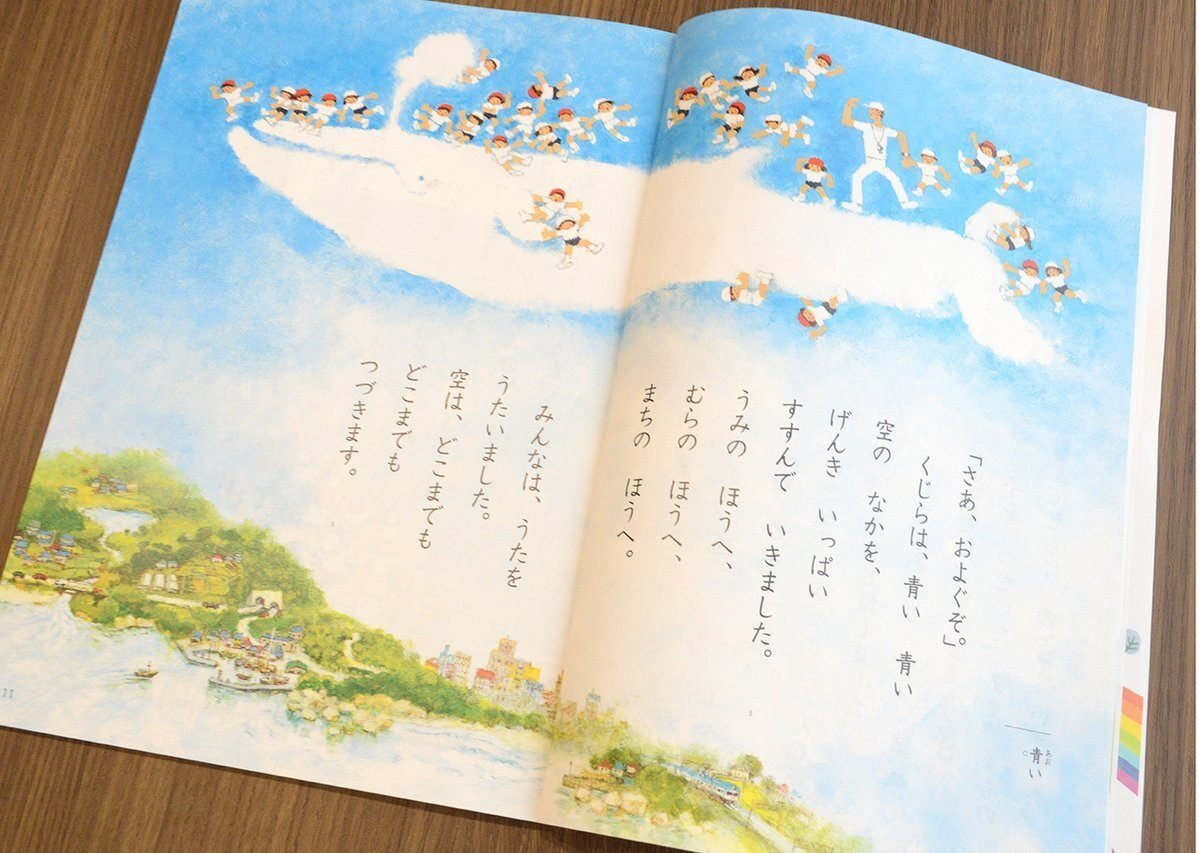 「さあ、およぐぞ」。
くじらは、青い 青い
空の なかを、
げんき いっぱい
すすんで いきました。
うみの ほうへ、
むらの ほうへ、
まちの ほうへ。
5
青い
あお
みんなは、うたを
うたいました。
空は、どこまでも
どこまでも
つづきます。
5
11